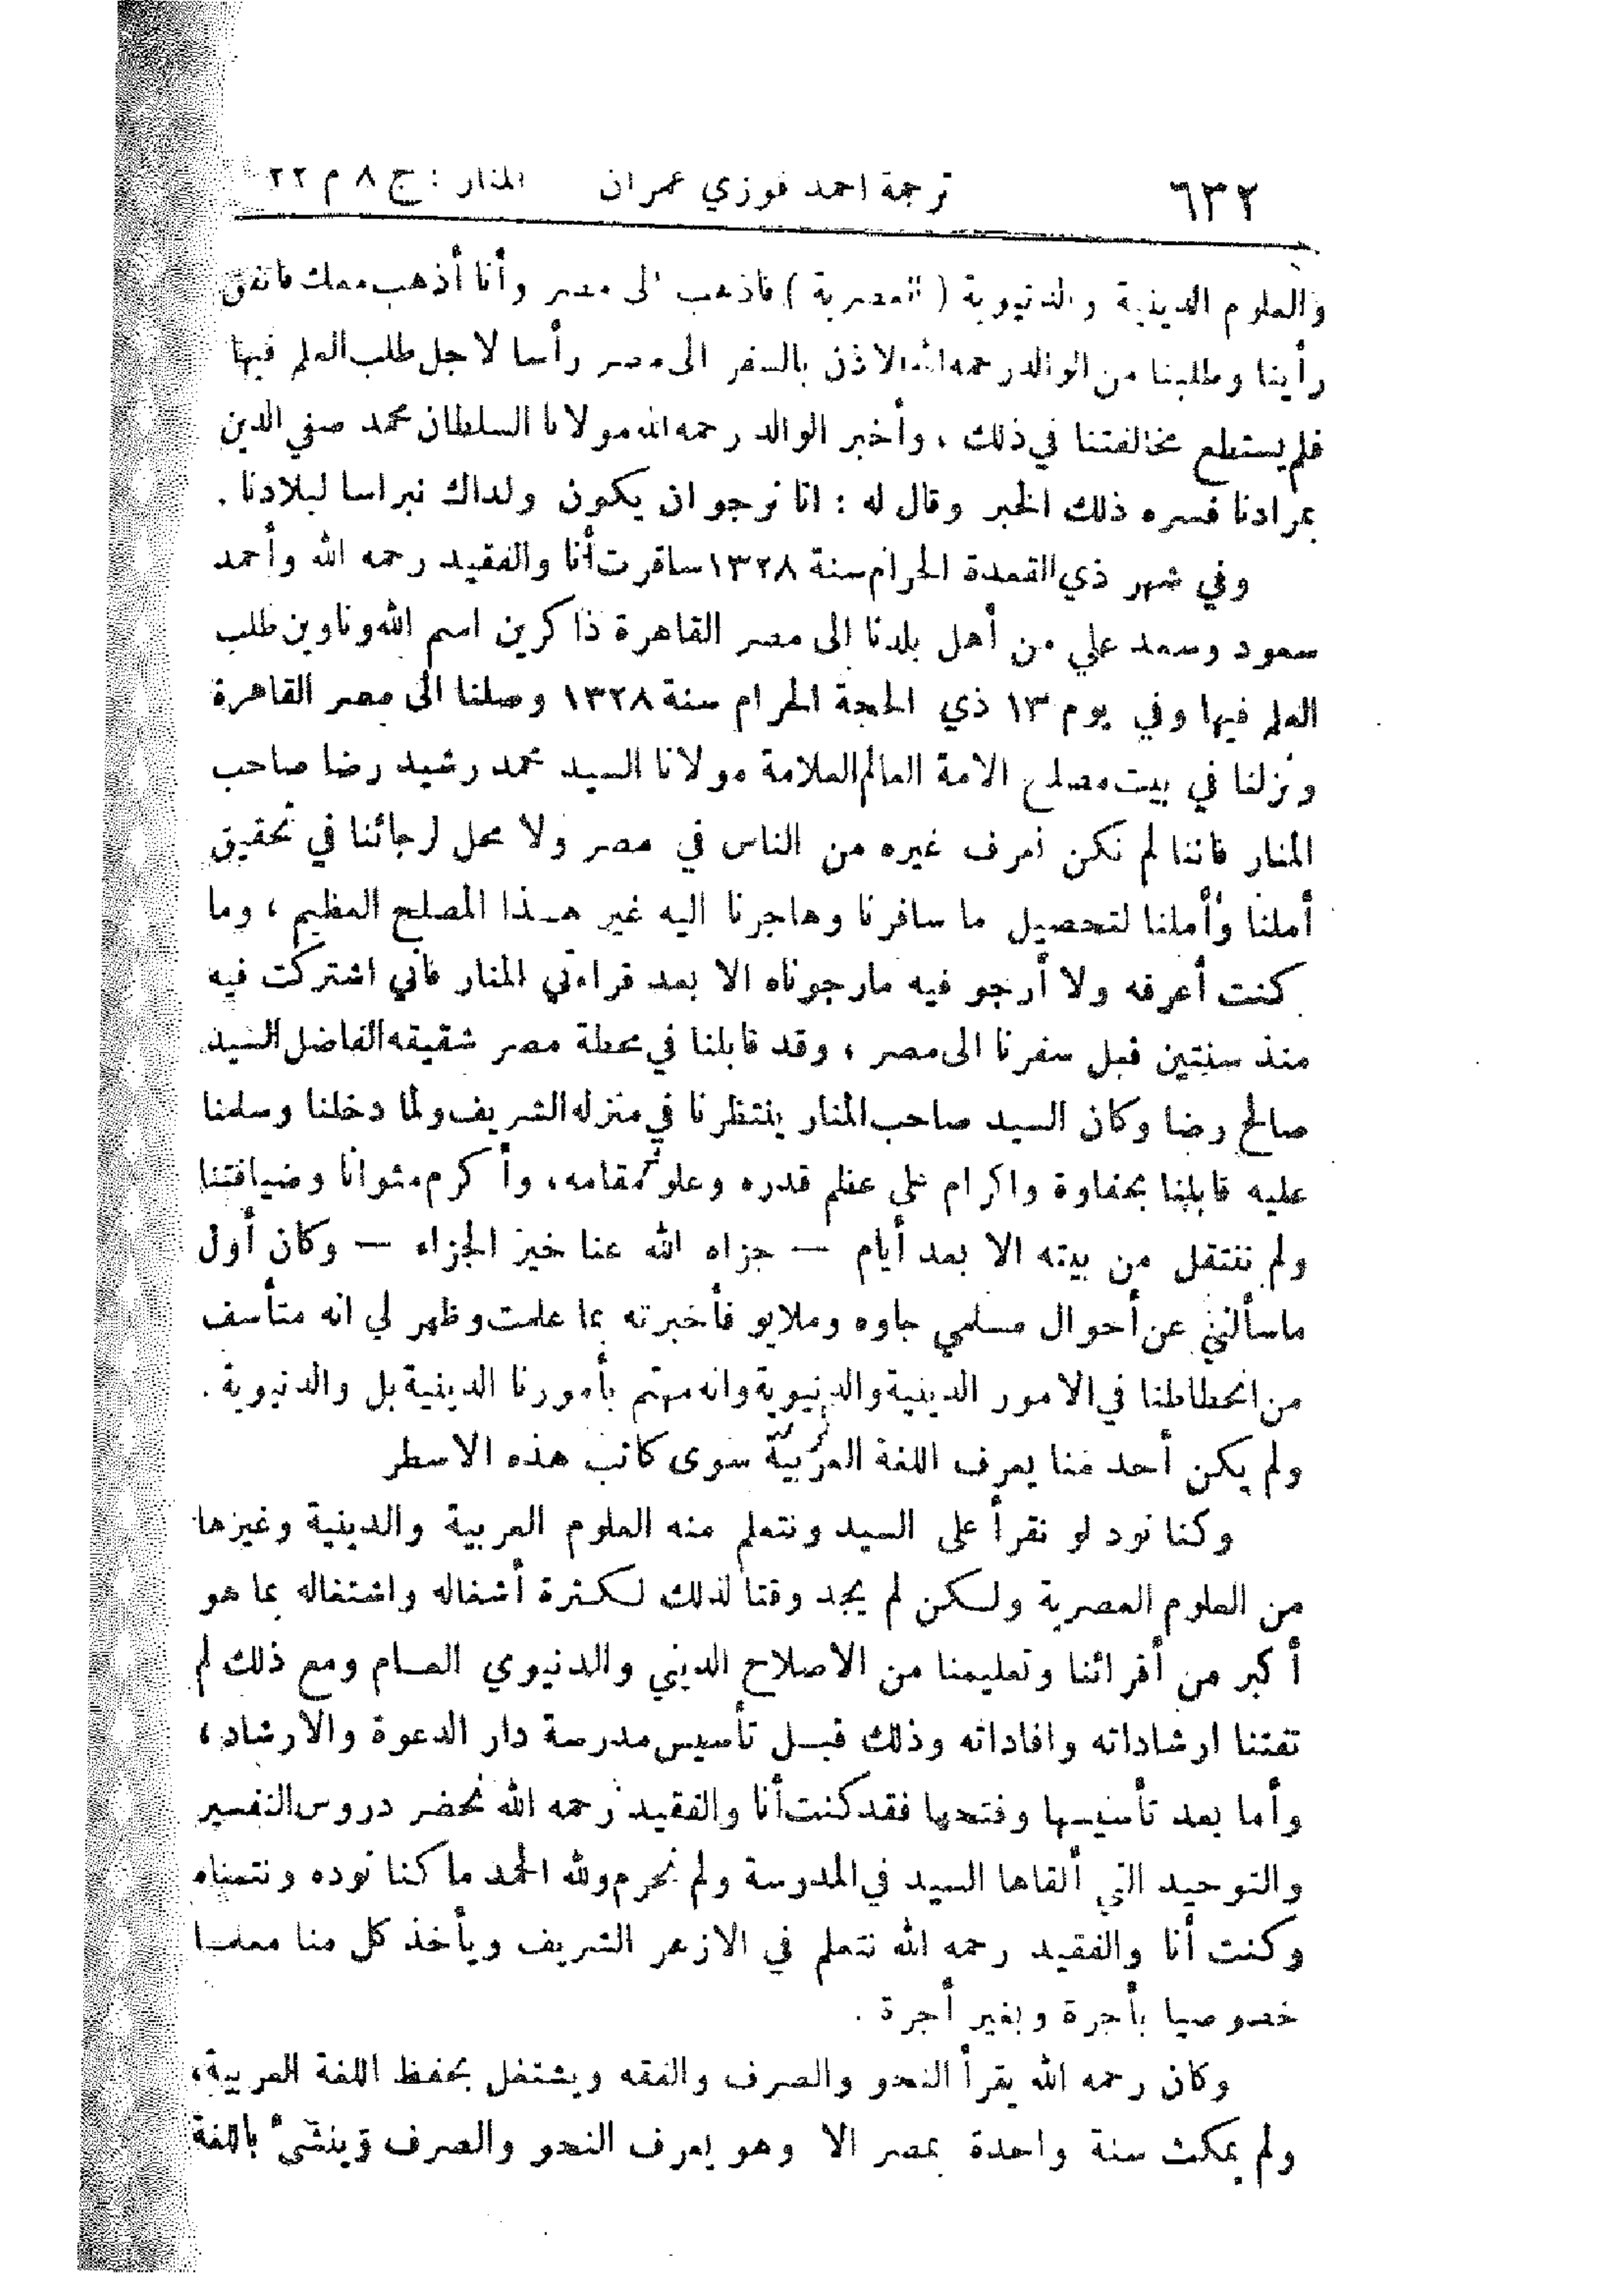 ٦٣٢ ترجمة احمد فوزي عمران المنار : ج ٨ م ٢٢
والعلوم الدينية والدنيوية ( العصرية ) فاذهب الى مصر وأنا أذهب معك فاتفق
رأينا وطلبنا من الوالد رحمه الله الاذن بالسفر الى مصر رأسا لاجل طلب العلم فيها
فلم يستطع مخالفتنا في ذلك ، وأخبر الوالد رحمه الله مولانا السلطان محمد صفي الدين
بمرادنا فسره ذلك الخبر وقال له : انا نرجو ان يكون ولداك نبراسا لبلادنا .
وفي شهر ذي القعدة الحرام سنة ١٣٢٨ سافرت أنا والفقيد رحمه الله وأحمد
سعود وسعد علي من أهل بلدنا الى مصر القاهرة ذاكرين اسم الله وناوين طلب
العلم فيها وفي يوم ١٣ ذي الحجة الحرام سنة ١٣٢٨ وصلنا الى مصر القاهرة
ونزلنا في بيت مصلح الامة العالم العلامة مولانا السيد محمد رشيد رضا صاحب
المنار فاننا لم نكن نعرف غيره من الناس في مصر ولا محل لرجائنا في تحقيق
أملنا وأملنا لتحصيل ما سافرنا وهاجرنا اليه غير هـذا المصلح العظيم ، وما
كنت أعرفه ولا أرجو فيه مارجوناه الا بعد قراءتي المنار فاني اشتركت فيه
منذ سنتين قبل سفرنا الى مصر ، وقد قابلنا في محطة مصر شقيقه الفاضل السيد
صالح رضا وكان السيد صاحب المنار ينتظرنا في منزله الشريف ولما دخلنا وسلمنا
عليه قابلنا بحفاوة واكرام على عظم قدره وعلو مقامه، وأكرم مثوانا وضيافتنا
ولم ننتقل من بيته الا بعد أيام — جزاه الله عنا خير الجزاء — وكان أول
ماسألني عن أحوال مسلمي جاوه وملايو فأخبرته بما علمت وظهر لي انه متأسف
من انحطاطنا في الامور الدينية والدنيوية وانه مهتم بأمورنا الدينية بل والدنيوية .
ولم يكن أحد منا يعرف اللغة العربية سوى كاتب هذه الاسطر
وكنا نود لو نقرأ على السيد ونتعلم منه العلوم العربية والدينية وغيرها
من العلوم العصرية ولكن لم يجد وقتا لذلك لكثرة أشغاله واشتغاله بما هو
أكبر من أقرائنا وتعليمنا من الاصلاح الديني والدنيوي العـام ومع ذلك لم
تفتنا ارشاداته وافاداته وذلك قبـل تأسيس مدرسة دار الدعوة والارشاد ،
وأما بعد تأسيسها وفتحها فقد كنت أنا والفقيد رحمه الله نحضر دروس التفسير
والتوحيد التي ألقاها السيد في المدرسة ولم نحرم ولله الحمد ما كنا نوده ونتمناه
وكنت أنا والفقيد رحمه الله نتعلم في الازهر الشريف ويأخذ كل منا معلمـا
خصوصيا بأجرة وبغير أجرة .
وكان رحمه الله يقرأ النحو والصرف والفقه ويشتغل بحفظ اللغة العربية،
ولم يمكث سنة واحدة بمصر الا وهو يعرف النحو والصرف وينشئ باللغة